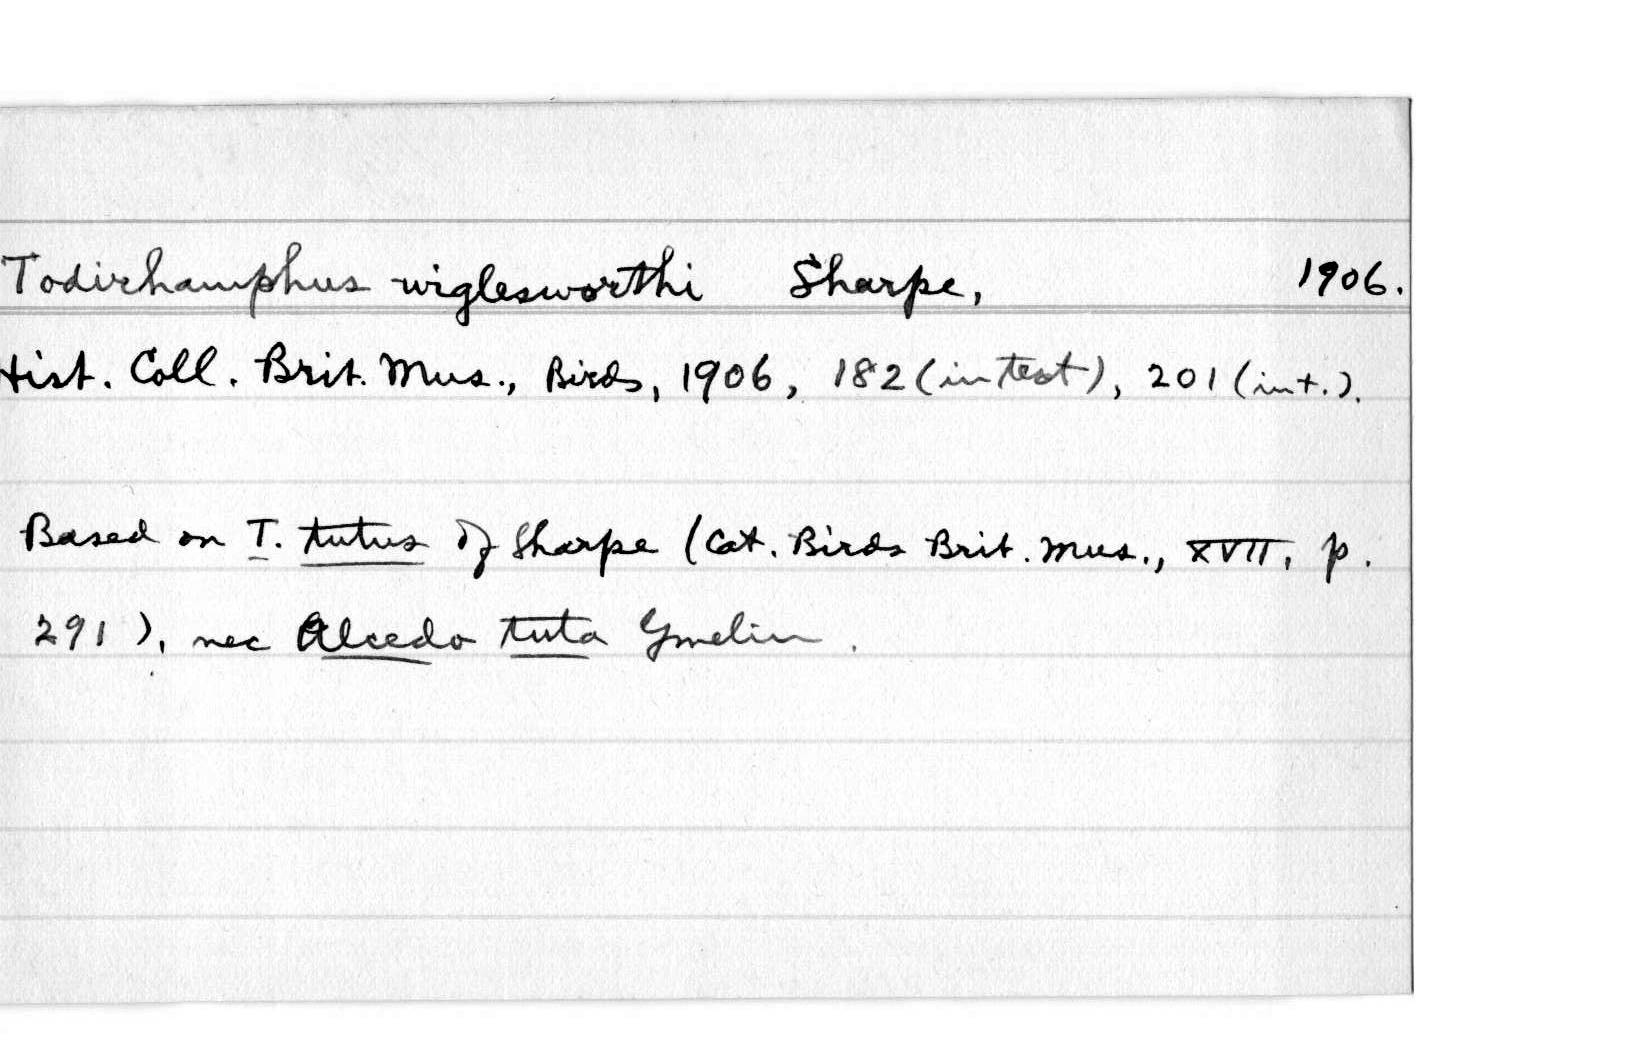 Todirhamphus wiglesworthi Sharpe, 1906.
Hist. Coll. Brit. Mus., Birds, 1906, 182 (in text), 201 (in t.).
Based on T. tutus of Sharpe (Cat. Birds Brit. Mus., XVII, p.
291), nec Alcedo tuta Gmelin.